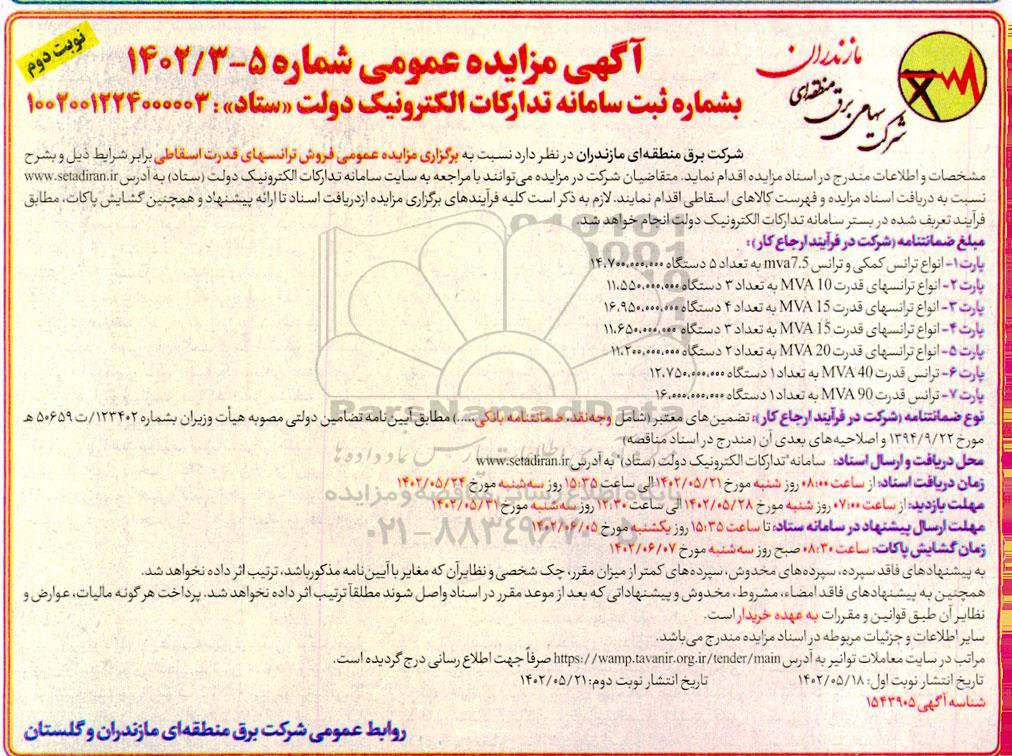 نوبت دوم
آگهی مزایده عمومی شماره ۵-۱۴۰۲/۳
بشماره ثبت سامانه تدارکات الکترونیک دولت «ستاد»: ۱۰۰۲۰۰۱۲۲۴۰۰۰۰۰۳
شرکت سهامی برق منطقه‌ای مازندران
شرکت برق منطقه‌ای مازندران در نظر دارد نسبت به برگزاری مزایده عمومی فروش ترانسهای قدرت اسقاطی برابر شرایط ذیل و بشرح
مشخصات و اطلاعات مندرج در اسناد مزایده اقدام نماید. متقاضیان شرکت در مزایده می‌توانند با مراجعه به سایت سامانه تدارکات الکترونیک دولت (ستاد) به آدرس www.setadiran.ir
نسبت به دریافت اسناد مزایده و فهرست کالاهای اسقاطی اقدام نمایند. لازم به ذکر است کلیه فرآیندهای برگزاری مزایده ازدریافت اسناد تا ارائه پیشنهاد و همچنین گشایش پاکات، مطابق
فرآیند تعریف شده در بستر سامانه تدارکات الکترونیک دولت انجام خواهد شد.
مبلغ ضمانتنامه (شرکت در فرآیند ارجاع کار):
پارت ۱- انواع ترانس کمکی و ترانس mva7.5 به تعداد ۵ دستگاه ۱۴،۷۰۰،۰۰۰،۰۰۰
پارت ۲- انواع ترانسهای قدرت MVA 10 به تعداد ۳ دستگاه ۱۱،۵۵۰،۰۰۰،۰۰۰
پارت ۳- انواع ترانسهای قدرت MVA 15 به تعداد ۴ دستگاه ۱۶،۹۵۰،۰۰۰،۰۰۰
پارت ۴- انواع ترانسهای قدرت MVA 15 به تعداد ۳ دستگاه ۱۱،۶۵۰،۰۰۰،۰۰۰
پارت ۵- انواع ترانسهای قدرت MVA 20 به تعداد ۲ دستگاه ۱۱،۲۰۰،۰۰۰،۰۰۰
پارت ۶- ترانس قدرت MVA 40 به تعداد ۱ دستگاه ۱۲،۷۵۰،۰۰۰،۰۰۰
پارت ۷- ترانس قدرت MVA 90 به تعداد ۱ دستگاه ۱۶،۰۰۰،۰۰۰،۰۰۰
نوع ضمانتنامه (شرکت در فرآیند ارجاع کار): تضمین های معتبر (شامل وجه نقد، ضمانتنامه بانکی،....) مطابق آیین نامه تضامین دولتی مصوبه هیأت وزیران بشماره ۱۲۳۴۰۲/ت ۵۰۶۵۹ هـ
مورخ ۱۳۹۴/۹/۲۲ و اصلاحیه‌های بعدی آن (مندرج در اسناد مناقصه)
محل دریافت و ارسال اسناد: سامانه "تدارکات الکترونیک دولت (ستاد)" به آدرس www.setadiran.ir
زمان دریافت اسناد: از ساعت ۰۸:۰۰ روز شنبه مورخ ۱۴۰۲/۰۵/۲۱ الی ساعت ۱۵:۳۵ روز سه‌شنبه مورخ ۱۴۰۲/۰۵/۲۴
مهلت بازدید: از ساعت ۰۷:۰۰ روز شنبه مورخ ۱۴۰۲/۰۵/۲۸ الی ساعت ۱۲:۳۰ روز سه‌شنبه مورخ ۱۴۰۲/۰۵/۳۱
مهلت ارسال پیشنهاد در سامانه ستاد: تا ساعت ۱۵:۳۵ روز یکشنبه مورخ ۱۴۰۲/۰۶/۰۵
زمان گشایش پاکات: ساعت ۰۸:۳۰ صبح روز سه‌شنبه مورخ ۱۴۰۲/۰۶/۰۷
به پیشنهادهای فاقد سپرده، سپرده‌های مخدوش، سپرده‌های کمتر از میزان مقرر، چک شخصی و نظایرآن که مغایر با آیین نامه مذکورباشد، ترتیب اثر داده نخواهد شد.
همچنین به پیشنهادهای فاقد امضاء، مشروط، مخدوش و پیشنهاداتی که بعد از موعد مقرر در اسناد واصل شوند مطلقاً ترتیب اثر داده نخواهد شد. پرداخت هر گونه مالیات، عوارض و
نظایر آن طبق قوانین و مقررات به عهده خریدار است.
سایر اطلاعات و جزئیات مربوطه در اسناد مزایده مندرج می‌باشد.
مراتب در سایت معاملات توانیر به آدرس https://wamp.tavanir.org.ir/tender/main صرفاً جهت اطلاع رسانی درج گردیده است.
تاریخ انتشار نوبت اول: ۱۴۰۲/۰۵/۱۸ تاریخ انتشار نوبت دوم: ۱۴۰۲/۰۵/۲۱
شناسه آگهی ۱۵۴۳۹۰۵
روابط عمومی شرکت برق منطقه‌ای مازندران و گلستان
پایگاه اطلاع رسانی مناقصه و مزایده